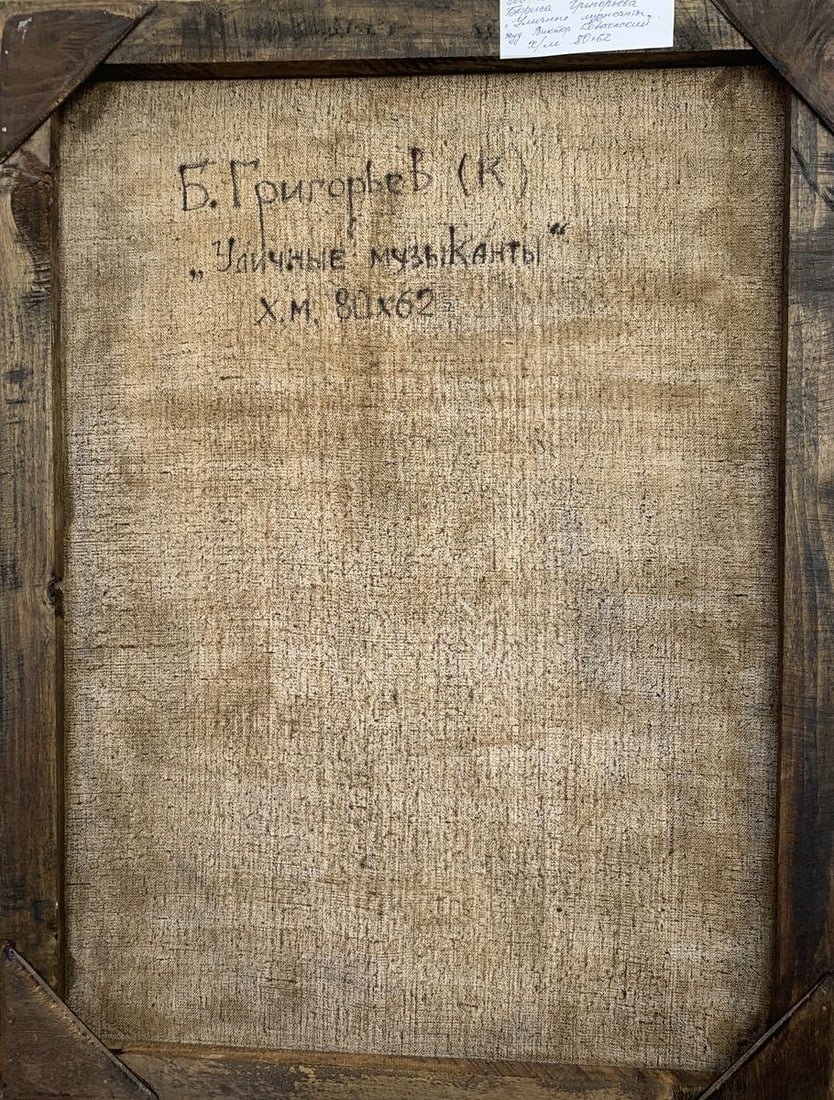 Бориса Григорьева
„Уличные музыканты"
худ Виктор
х/м 80х62
Б. Григорьев (К)
„Уличные музыканты“
Х.М. 80х62